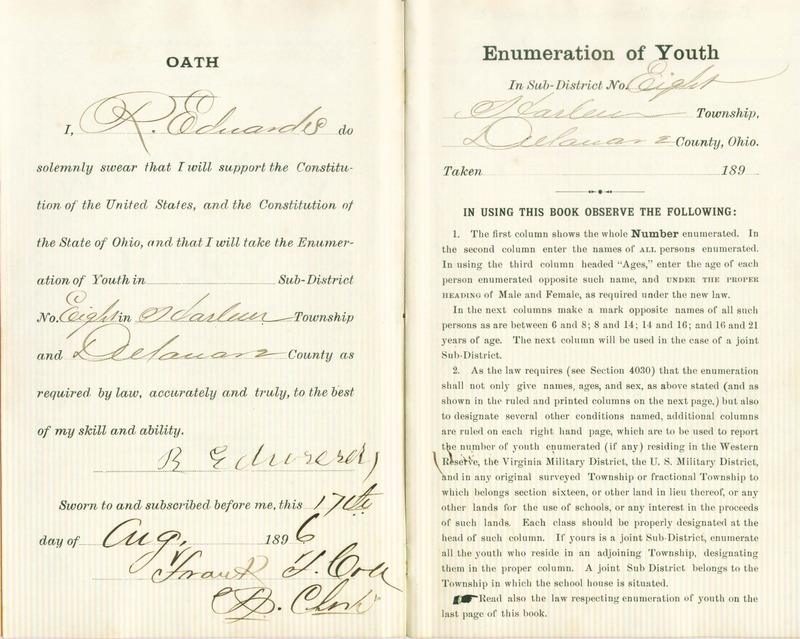 OATH
I, R. Edwards do
solemnly swear that I will support the Constitu-
tion of the United States, and the Constitution of
the State of Ohio, and that I will take the Enumer-
ation of Youth in Sub-District
No. Eight in Harlem Township
and Delaware County as
required by law, accurately and truly, to the best
of my skill and ability.
R Edwards
Sworn to and subscribed before me, this 17th
day of Aug, 1896
Frank
Clerk
Enumeration of Youth
In Sub-District No. Eight
Harlem Township,
Delaware County, Ohio.
Taken 189
IN USING THIS BOOK OBSERVE THE FOLLOWING:
1. The first column shows the whole Number enumerated. In
the second column enter the names of ALL persons enumerated.
In using the third column headed "Ages," enter the age of each
person enumerated opposite such name, and UNDER THE PROPER
HEADING of Male and Female, as required under the new law.
In the next columns make a mark opposite names of all such
persons as are between 6 and 8; 8 and 14; 14 and 16; and 16 and 21
years of age. The next column will be used in the case of a joint
Sub-District.
2. As the law requires (see Section 4030) that the enumeration
shall not only give names, ages, and sex, as above stated (and as
shown in the ruled and printed columns on the next page,) but also
to designate several other conditions named, additional columns
are ruled on each right hand page, which are to be used to report
the number of youth enumerated (if any) residing in the Western
Reserve, the Virginia Military District, the U. S. Military District,
and in any original surveyed Township or fractional Township to
which belongs section sixteen, or other land in lieu thereof, or any
other lands for the use of schools, or any interest in the proceeds
of such lands. Each class should be properly designated at the
head of such column. If yours is a joint Sub-District, enumerate
all the youth who reside in an adjoining Township, designating
them in the proper column. A joint Sub District belongs to the
Township in which the school house is situated.
Read also the law respecting enumeration of youth on the
last page of this book.